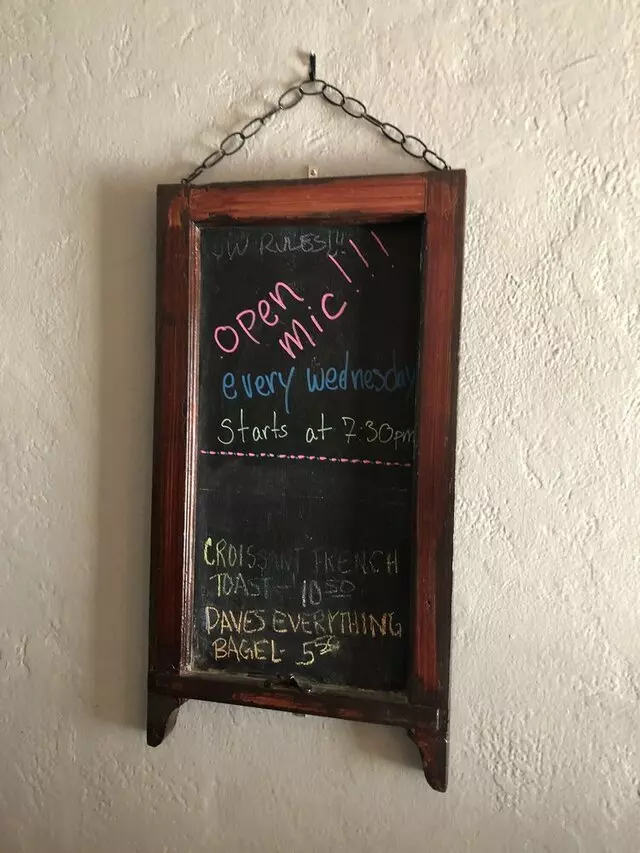 JW RULES!!!
open
mic!!!
every wednesday
Starts at 7:30pm
CROISSANT FRENCH
TOAST - 10 50
DAVES EVERYTHING
BAGEL - 5 50